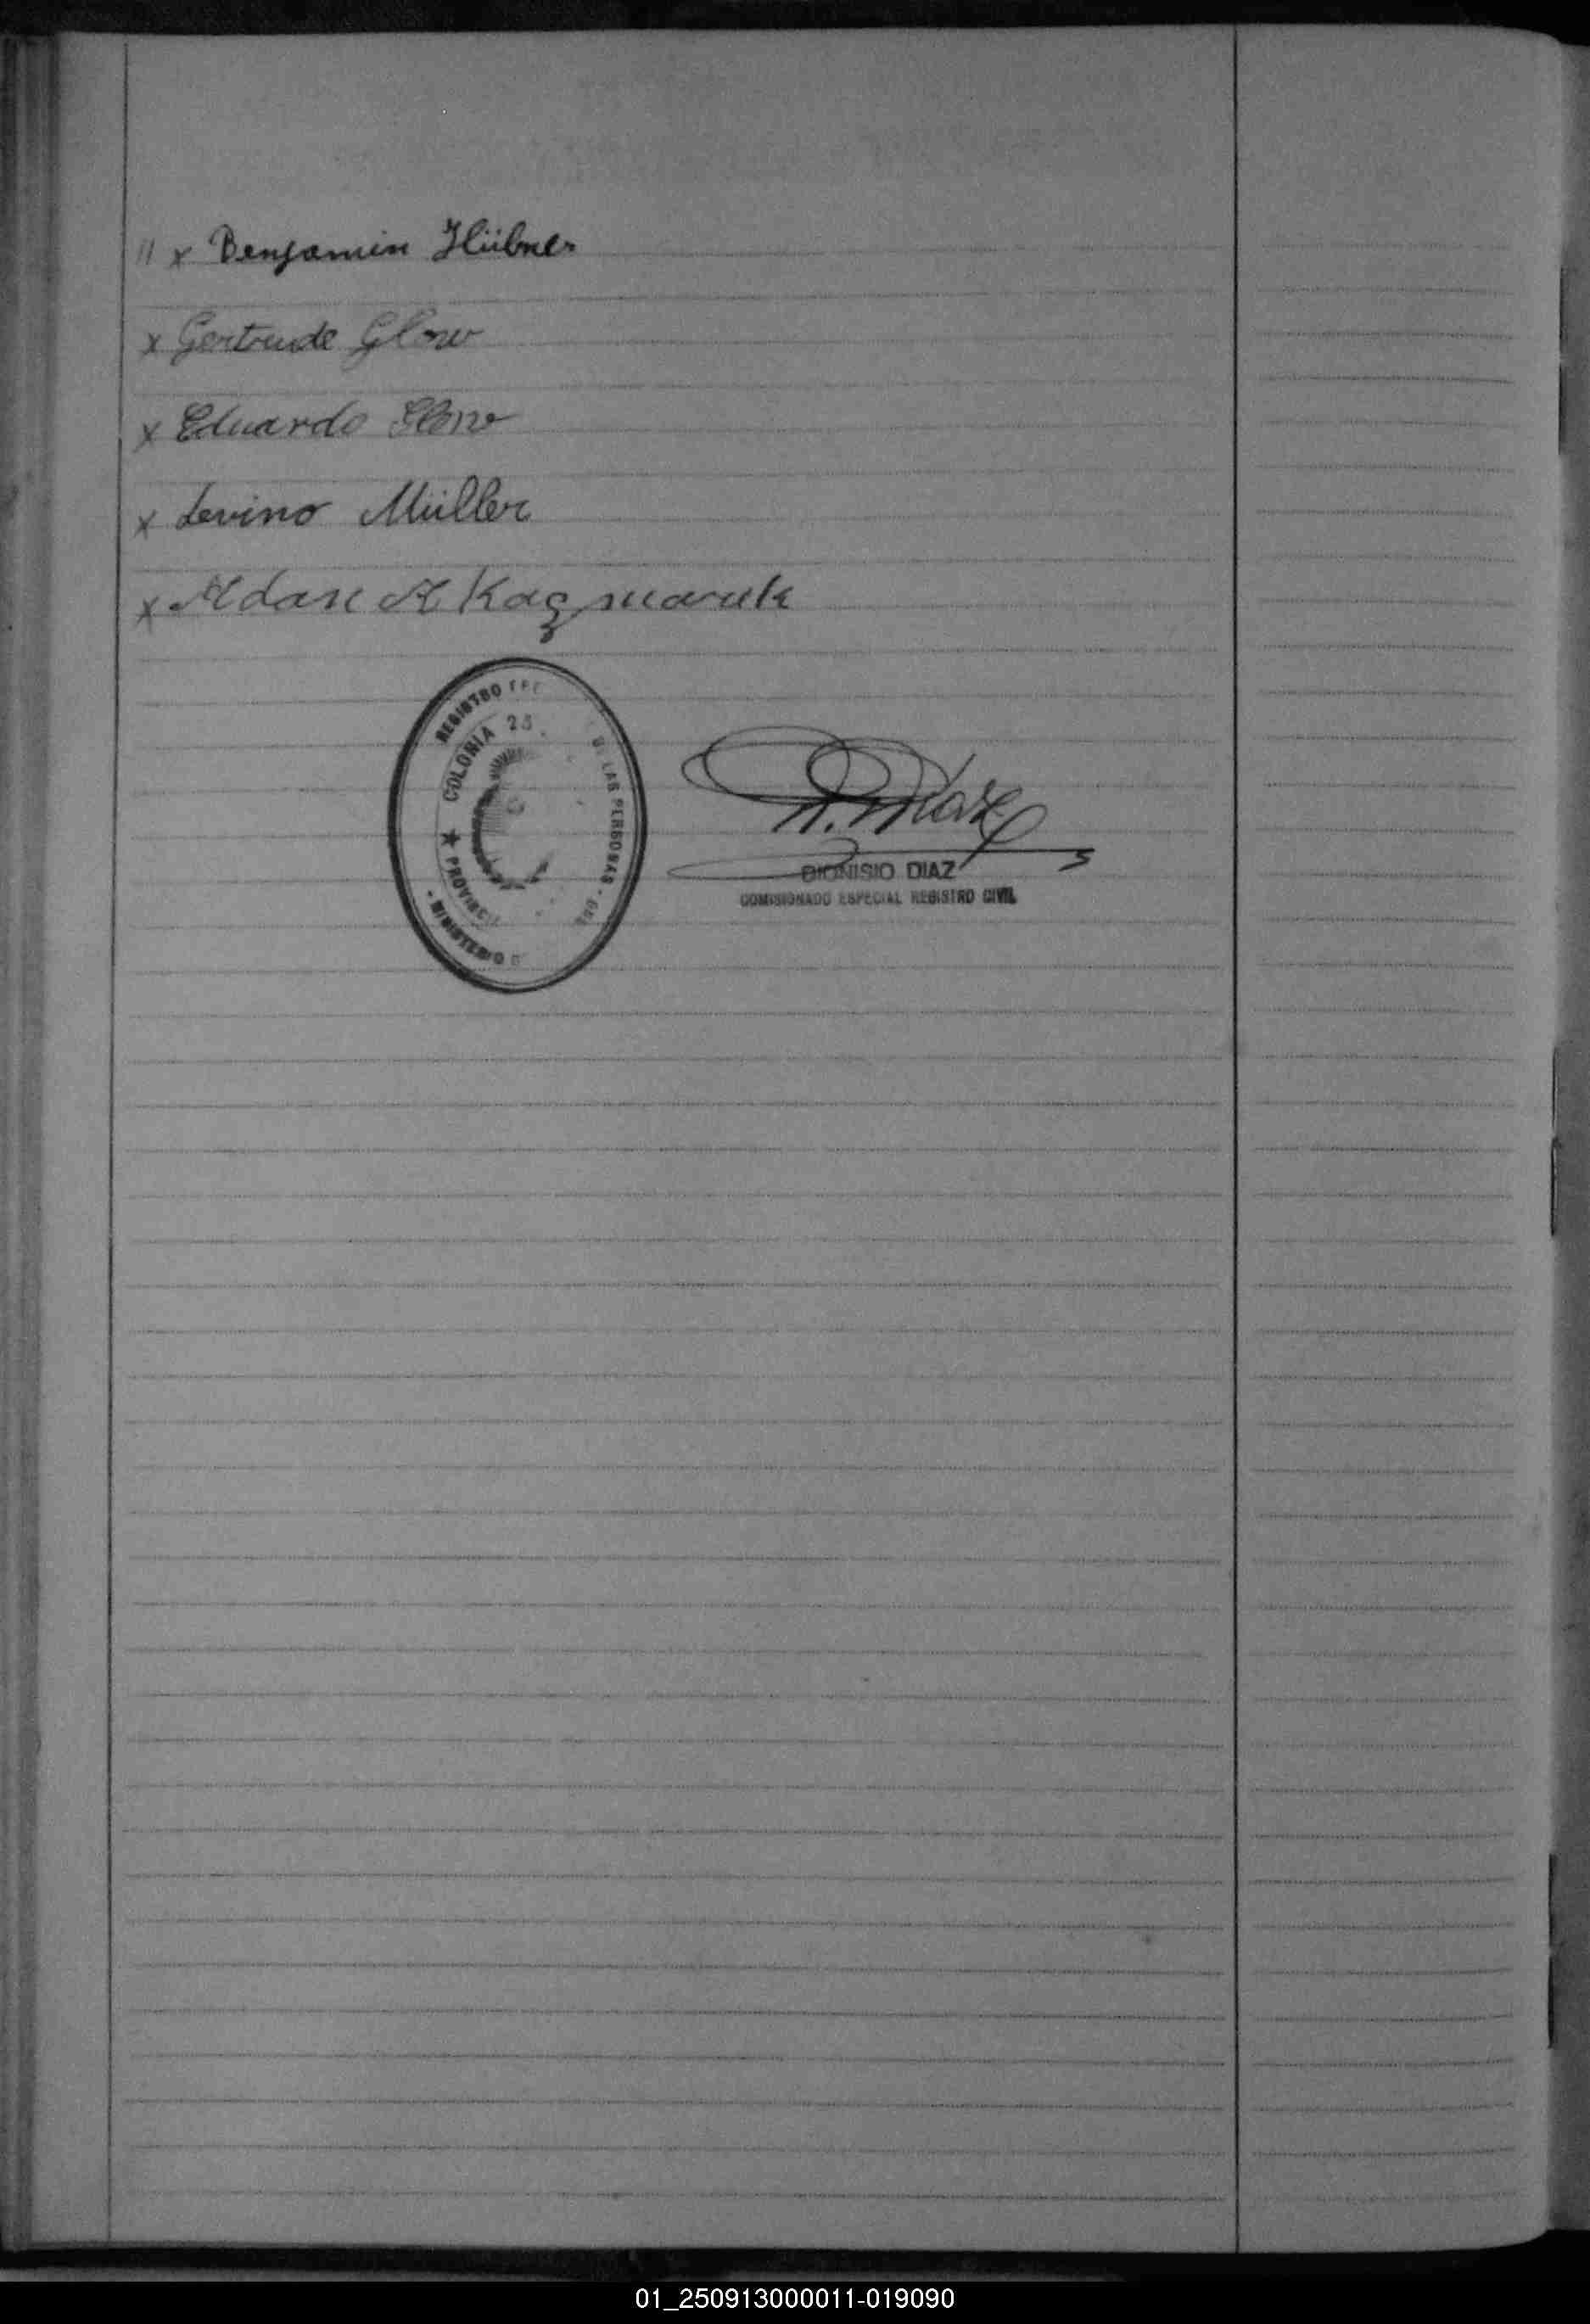 // x Benjamin Hübner
x Gertrude Glow
x Eduardo Glow
x Levino Müller
x Adan A Kaczmarek
REGISTRO
DE LAS PERSONAS
COLONIA 25
PROVINCIA
MINISTERIO D
D. Diaz
DIONISIO DIAZ
COMISIONADO ESPECIAL REGISTRO CIVIL
01_250913000011-019090